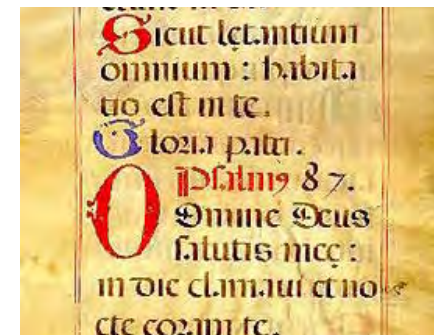 Sicut lętantium
omnium : habita
tio est in te.
Gloria patri.
Psalmꝰ 87.
Omine Deus
salutis meę :
in die clamaui et no
cte coram te.